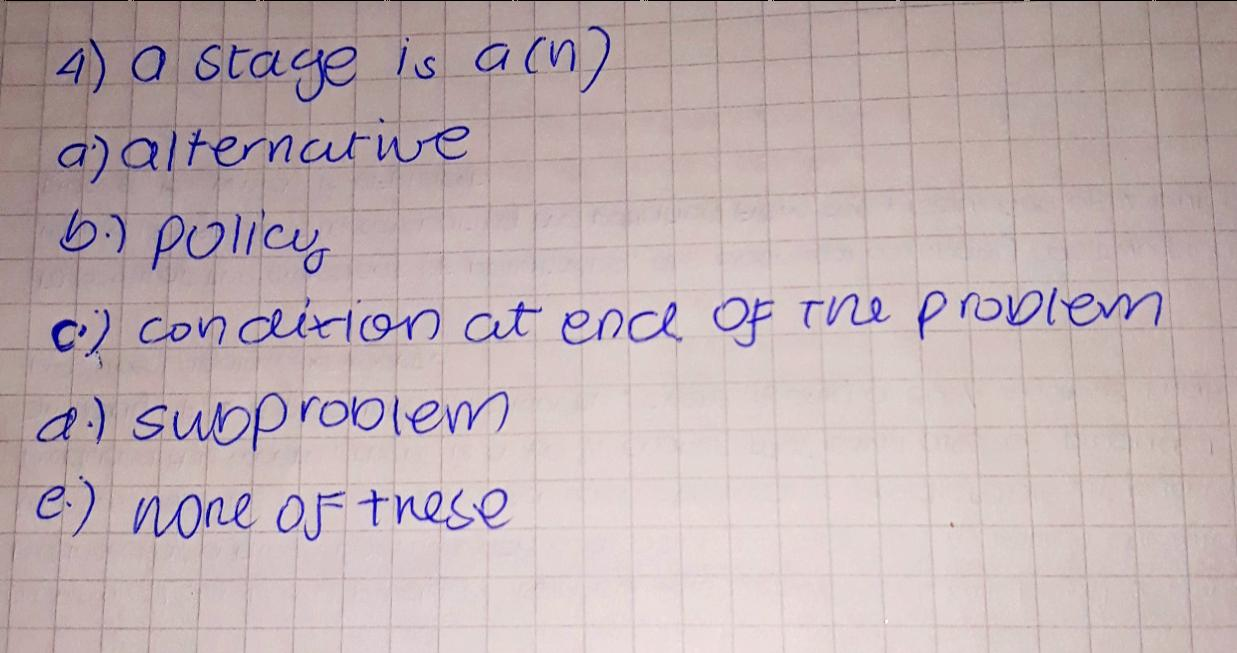 4) a stage is a(n)
a) alternative
b.) policy
c.) condition at end of the problem
d.) subproblem
e.) none of these